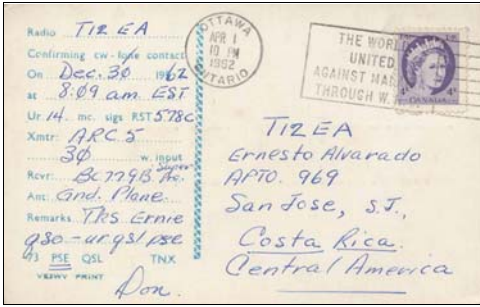 Radio TI2EA
Confirming cw-fone contact
On Dec. 30 1962
at 8:09 am EST
Ur 14 mc. sigs RST 578C
Xmtr: ARC5
30 w. input
Rcvr: BC779B Super Pro.
Ant: Gnd. Plane
Remarks Tks Ernie
qso - ur qsl pse
73 PSE QSL TNX
VE3WV PRINT
Don.
OTTAWA
APR 1
10 PM
1962
ONTARIO
THE WORLD
UNITED
AGAINST MA
THROUGH W.
4¢ 4¢
CANADA
TI2EA
Ernesto Alvarado
APTO. 969
San Jose, S.J.,
Costa Rica.
Central America